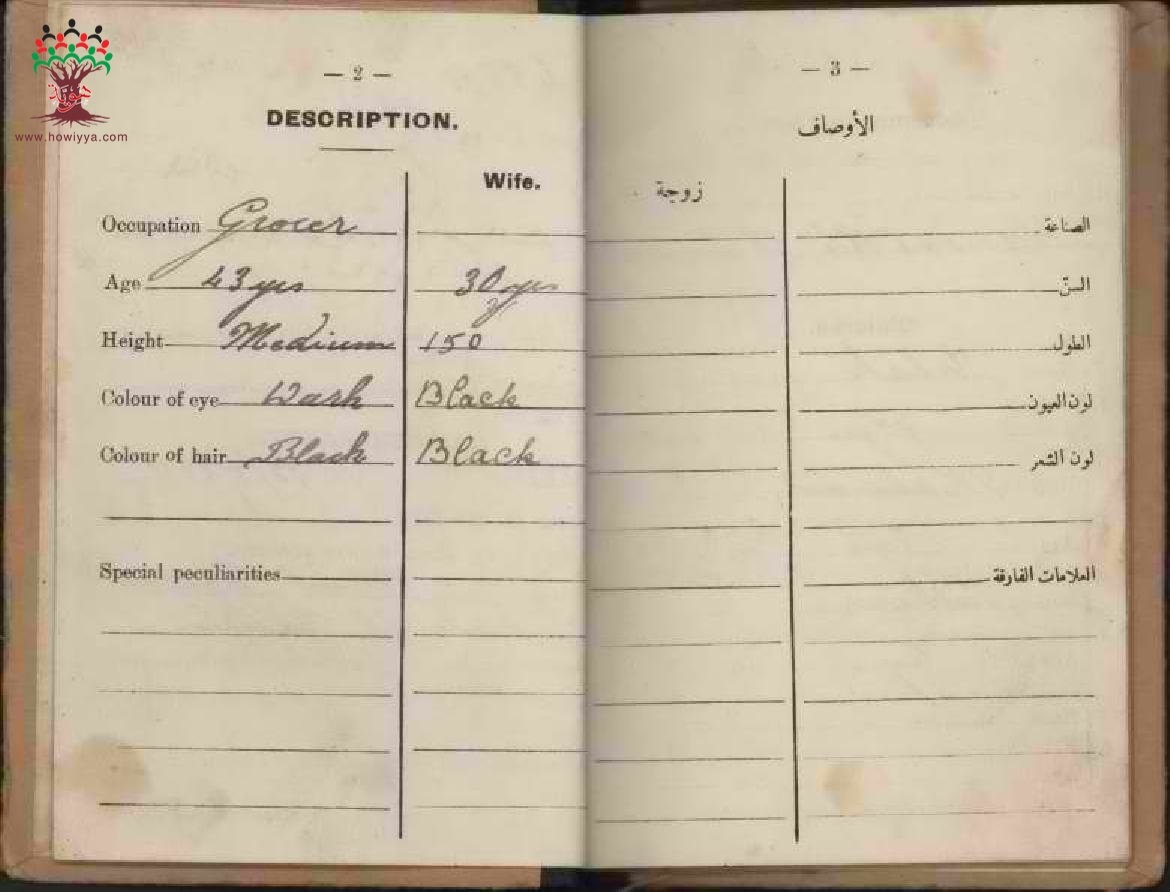 هوية
www.howiyya.com
— 2 —
DESCRIPTION.
Wife.
Occupation Grocer
Age 43 yrs 30 yrs
Height Medium 150
Colour of eye Dark Black
Colour of hair Black Black
Special peculiarities
— 3 —
الأوصاف
زوجة
الصناعة
السنّ
الطول
لون العيون
لون الشعر
العلامات الفارقة